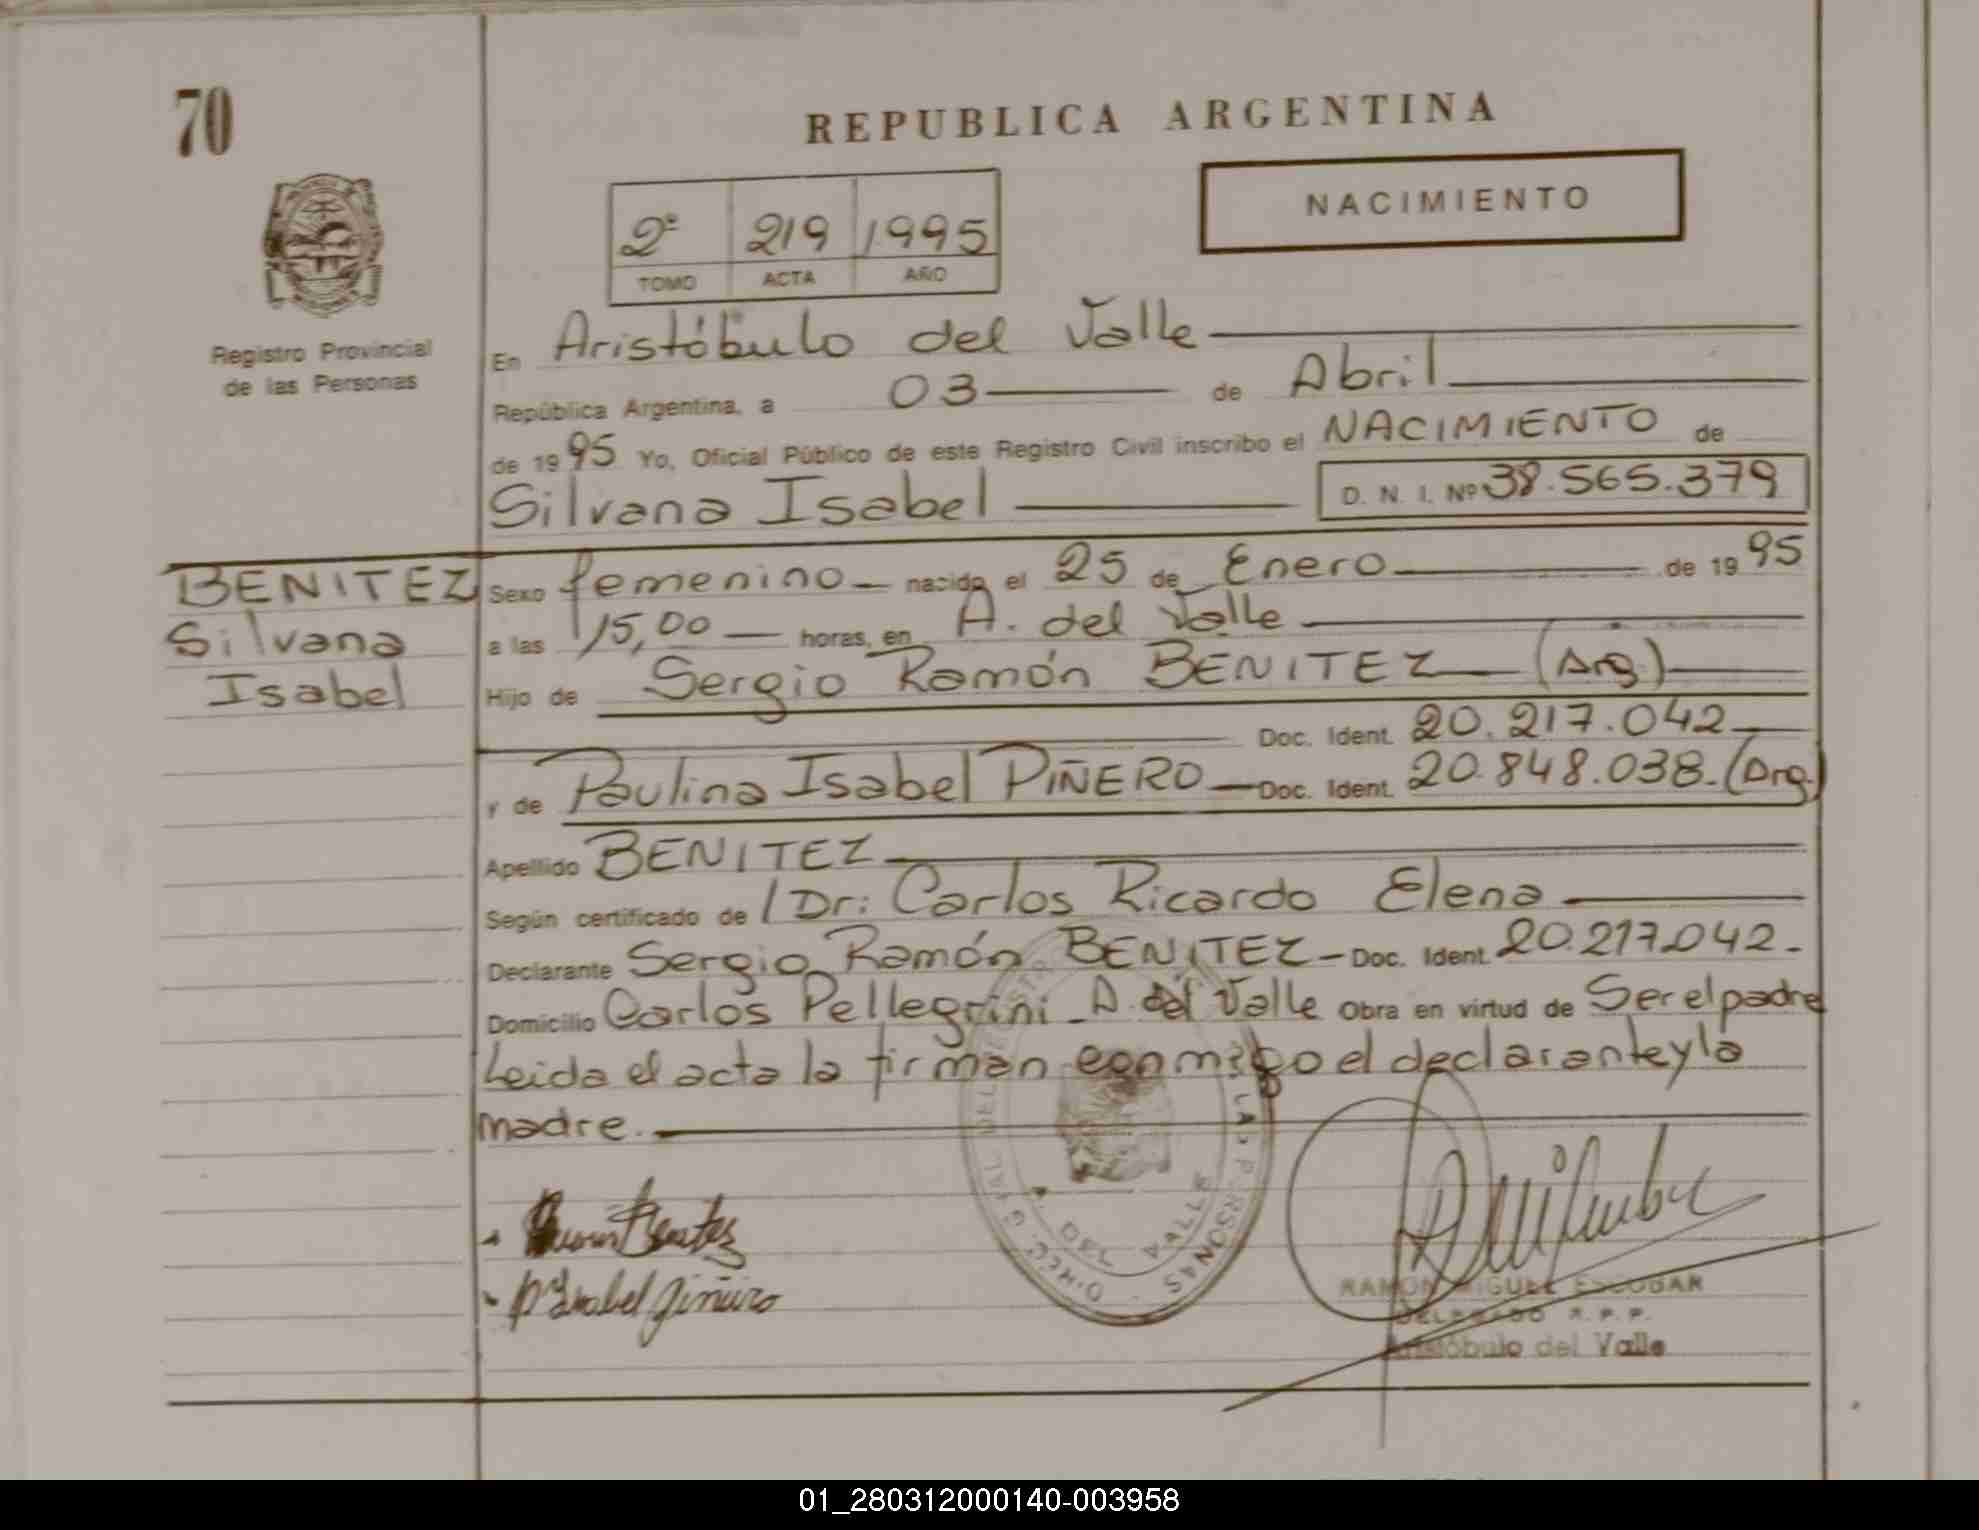 70
REPUBLICA ARGENTINA
NACIMIENTO
2º 219 1995
TOMO ACTA AÑO
Registro Provincial
de las Personas
En Aristóbulo del Valle
República Argentina, a 03 de Abril
de 1995 Yo, Oficial Público de este Registro Civil inscribo el NACIMIENTO de
Silvana Isabel D. N. I. Nº 38.565.379
BENITEZ
Silvana
Isabel
Sexo femenino nacido el 25 de Enero de 1995
a las 15,00 horas, en A. del Valle
Hijo de Sergio Ramón BENITEZ (Arg.)
Doc. Ident. 20.217.042
y de Paulina Isabel PIÑERO Doc. Ident. 20.848.038. (Arg.)
Apellido BENITEZ
Según certificado de Dr: Carlos Ricardo Elena
Declarante Sergio Ramón BENITEZ - Doc. Ident. 20.217.042.
Domicilio Carlos Pellegrini - A. del Valle Obra en virtud de Ser el padre
Leida el acta la firman conmigo el declarante y la
madre.
Benitez
Isabel Piñero
DEL
LAS PERSONAS
RAMON MIGUEL ESCOBAR
DELEGADO R. P. P.
Aristóbulo del Valle
01_280312000140-003958